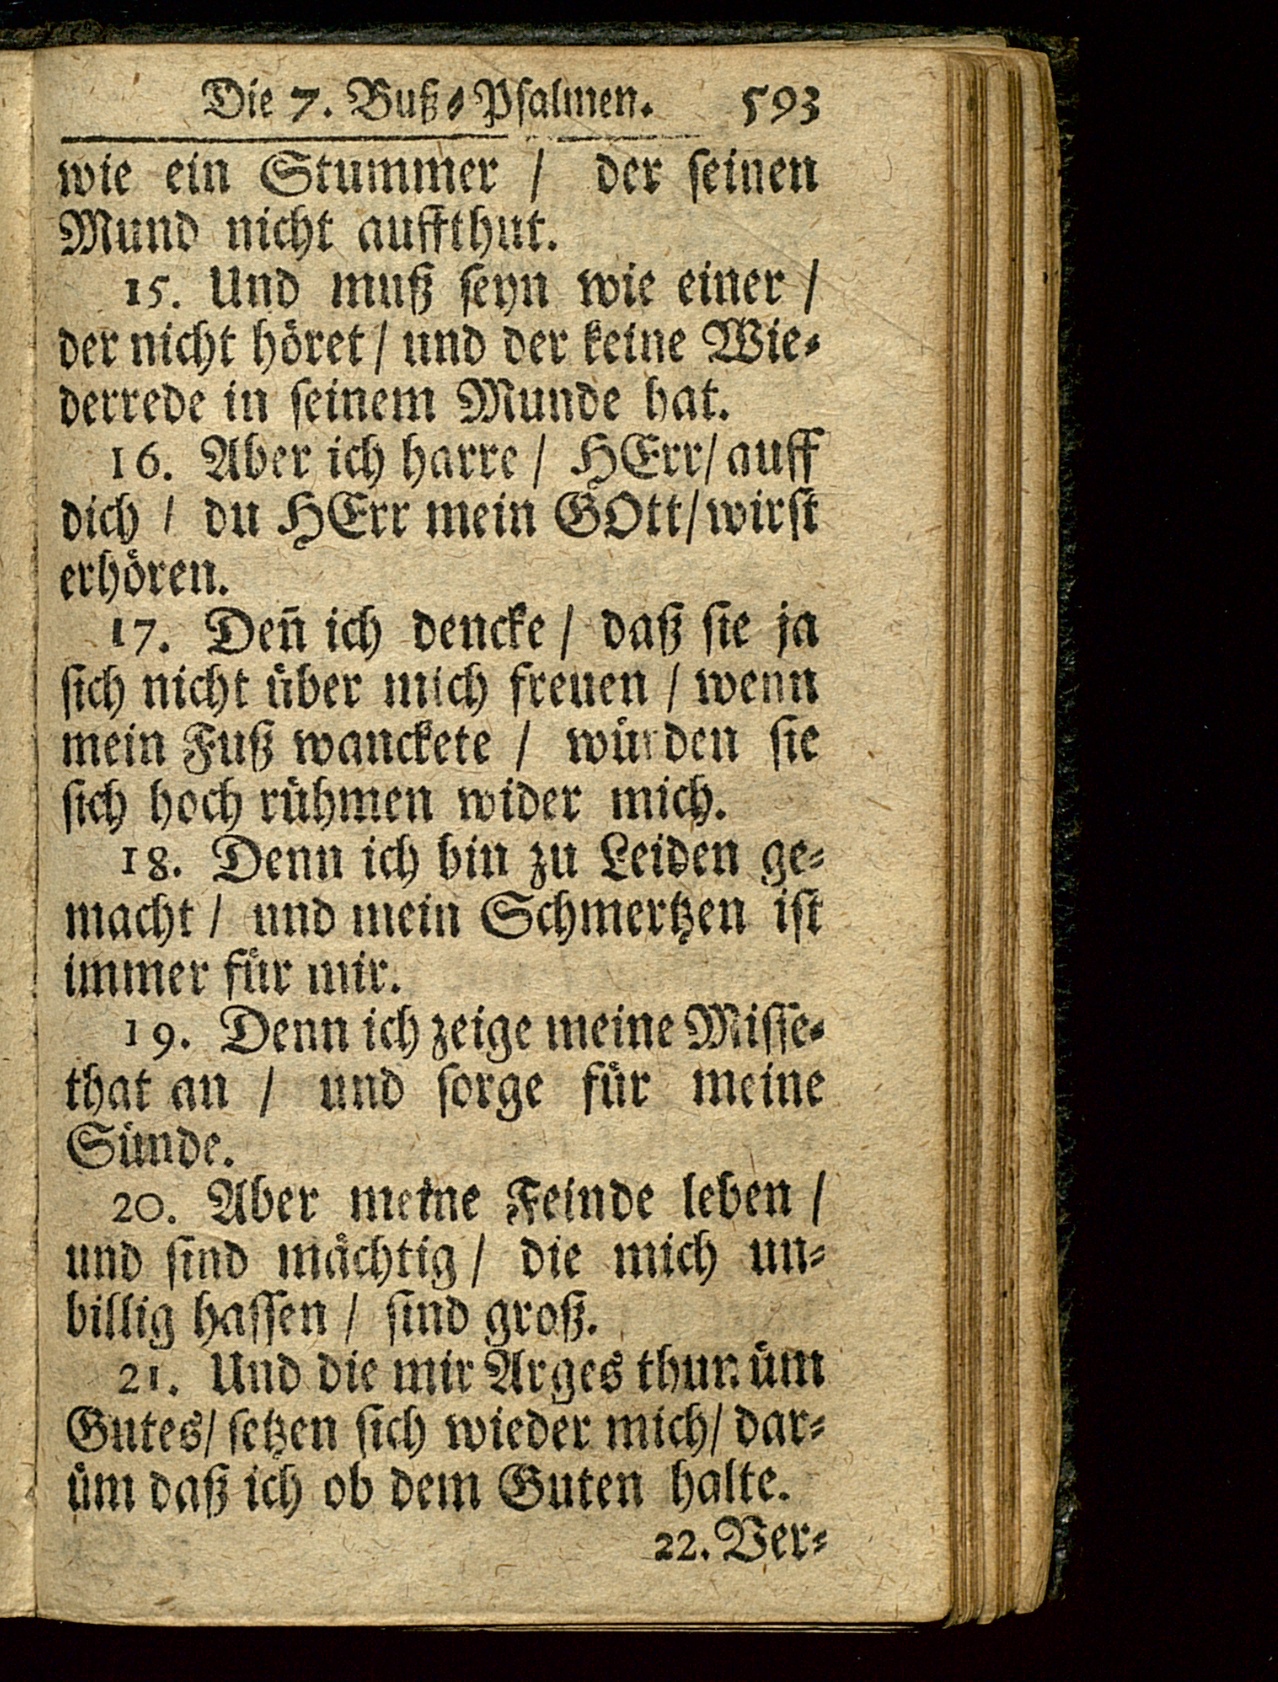 Die 7. Buß-Psalmen. 593
wie ein Stummer / der seinen
Mund nicht auffthut.
15. Und muß seyn wie einer /
der nicht höret / und der keine Wie-
derrede in seinem Munde hat.
16. Aber ich harre / HErr / auff
dich / du HErr mein GOtt / wirst
erhören.
17. Deñ ich dencke / daß sie ja
sich nicht über mich freuen / wenn
mein Fuß wanckete / würden sie
sich hoch rühmen wider mich.
18. Denn ich bin zu Leiden ge-
macht / und mein Schmertzen ist
immer für mir.
19. Denn ich zeige meine Misse-
that an / und sorge für meine
Sünde.
20. Aber meine Feinde leben /
und sind mächtig / die mich un-
billig hassen / sind groß.
21. Und die mir Arges thun üm
Gutes / setzen sich wieder mich / dar-
üm daß ich ob dem Guten halte.
22. Ver-